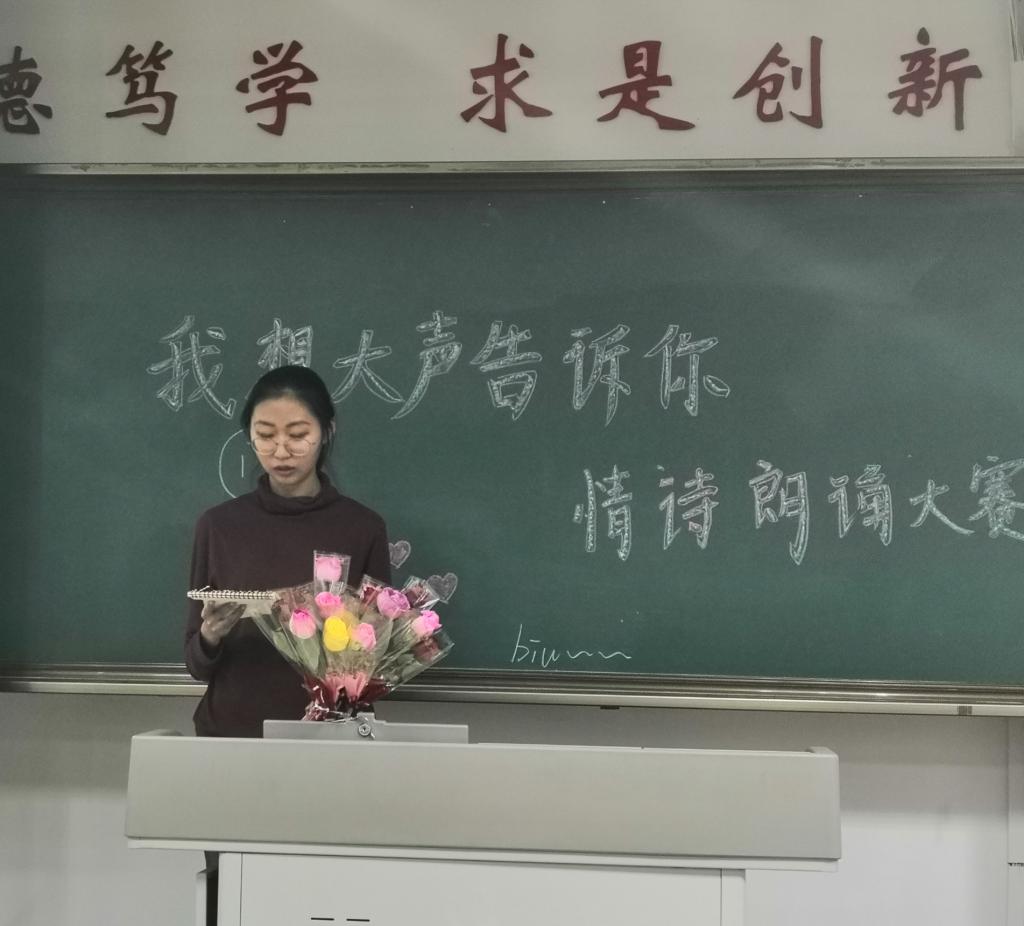 德 笃 学 求 是 创 新
我想大声告诉你
情诗朗诵大赛
biu~~~